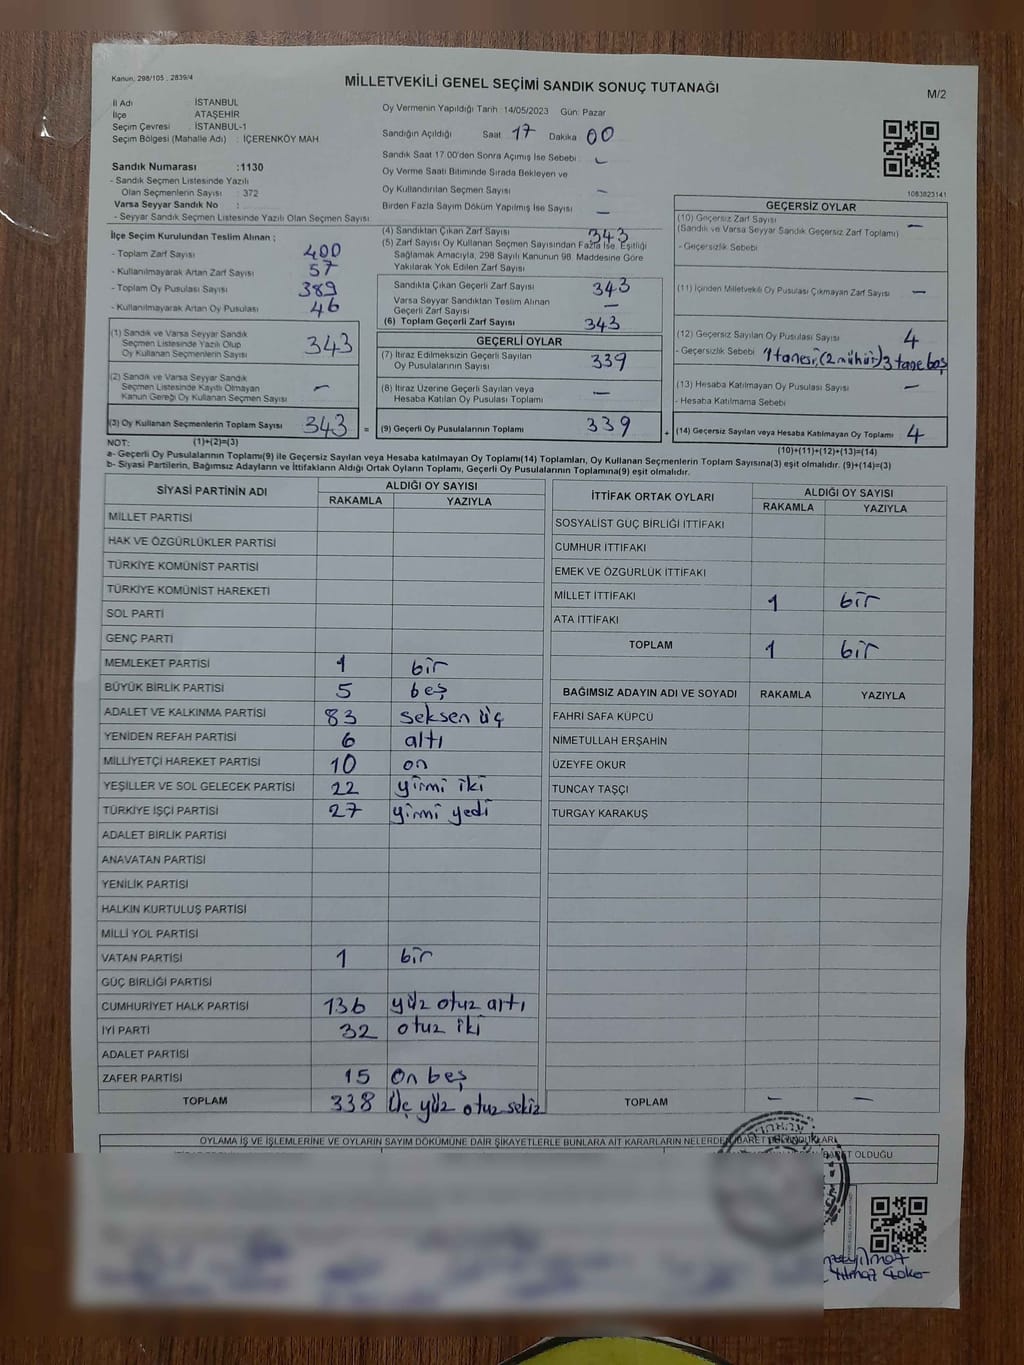 Kanun, 298/105 , 2839/4
MİLLETVEKİLİ GENEL SEÇİMİ SANDIK SONUÇ TUTANAĞI
M/2
İl Adı : İSTANBUL
İlçe ATAŞEHİR
Seçim Çevresi : İSTANBUL-1
Seçim Bölgesi (Mahalle Adı) : İÇERENKÖY MAH
Sandık Numarası :1130
- Sandık Seçmen Listesinde Yazılı
Olan Seçmenlerin Sayısı : 372
Varsa Seyyar Sandık No :
- Seyyar Sandık Seçmen Listesinde Yazılı Olan Seçmen Sayısı
Oy Vermenin Yapıldığı Tarih : 14/05/2023 Gün: Pazar
Sandığın Açıldığı Saat 17 Dakika 00
Sandık Saat 17.00'den Sonra Açılmış İse Sebebi : -
Oy Verme Saati Bitiminde Sırada Bekleyen ve
Oy Kullandırılan Seçmen Sayısı -
Birden Fazla Sayım Döküm Yapılmış İse Sayısı -
1083823141
İlçe Seçim Kurulundan Teslim Alınan ;
- Toplam Zarf Sayısı 400
- Kullanılmayarak Artan Zarf Sayısı 57
- Toplam Oy Pusulası Sayısı 389
- Kullanılmayarak Artan Oy Pusulası 46
(1) Sandık ve Varsa Seyyar Sandık
Seçmen Listesinde Yazılı Olup
Oy Kullanan Seçmenlerin Sayısı 343
(2) Sandık ve Varsa Seyyar Sandık
Seçmen Listesinde Kayıtlı Olmayan
Kanun Gereği Oy Kullanan Seçmen Sayısı -
(3) Oy Kullanan Seçmenlerin Toplam Sayısı 343 =
(4) Sandıktan Çıkan Zarf Sayısı 343
(5) Zarf Sayısı Oy Kullanan Seçmen Sayısından Fazla İse, Eşitliği
Sağlamak Amacıyla, 298 Sayılı Kanunun 98. Maddesine Göre
Yakılarak Yok Edilen Zarf Sayısı
Sandıkta Çıkan Geçerli Zarf Sayısı 343
Varsa Seyyar Sandıktan Teslim Alınan
Geçerli Zarf Sayısı -
(6) Toplam Geçerli Zarf Sayısı 343
GEÇERLİ OYLAR
(7) İtiraz Edilmeksizin Geçerli Sayılan
Oy Pusulalarının Sayısı 339
(8) İtiraz Üzerine Geçerli Sayılan veya
Hesaba Katılan Oy Pusulası Toplamı -
(9) Geçerli Oy Pusulalarının Toplamı 339 +
GEÇERSİZ OYLAR
(10) Geçersiz Zarf Sayısı -
(Sandık ve Varsa Seyyar Sandık Geçersiz Zarf Toplamı)
- Geçersizlik Sebebi
(11) İçinden Milletvekili Oy Pusulası Çıkmayan Zarf Sayısı -
(12) Geçersiz Sayılan Oy Pusulası Sayısı 4
- Geçersizlik Sebebi 1 tanesi (2 mühür) 3 tane boş
(13) Hesaba Katılmayan Oy Pusulası Sayısı -
- Hesaba Katılmama Sebebi
(14) Geçersiz Sayılan veya Hesaba Katılmayan Oy Pusulası Toplamı 4
NOT: (1)+(2)=(3) (10)+(11)+(12)+(13)=(14)
a- Geçerli Oy Pusulalarının Toplamı(9) ile Geçersiz Sayılan veya Hesaba katılmayan Oy Pusulası Toplamı(14) Toplamları, Oy Kullanan Seçmenlerin Toplam Sayısına(3) eşit olmalıdır. (9)+(14)=(3)
b- Siyasi Partilerin, Bağımsız Adayların ve İttifakların Aldığı Ortak Oyların Toplamı, Geçerli Oy Pusulalarının Toplamına(9) eşit olmalıdır.
SİYASİ PARTİNİN ADI ALDIĞI OY SAYISI
RAKAMLA YAZIYLA
MİLLET PARTİSİ
HAK VE ÖZGÜRLÜKLER PARTİSİ
TÜRKİYE KOMÜNİST PARTİSİ
TÜRKİYE KOMÜNİST HAREKETİ
SOL PARTİ
GENÇ PARTİ
MEMLEKET PARTİSİ 1 bir
BÜYÜK BİRLİK PARTİSİ 5 beş
ADALET VE KALKINMA PARTİSİ 83 seksen üç
YENİDEN REFAH PARTİSİ 6 altı
MİLLİYETÇİ HAREKET PARTİSİ 10 on
YEŞİLLER VE SOL GELECEK PARTİSİ 22 yirmi iki
TÜRKİYE İŞÇİ PARTİSİ 27 yirmi yedi
ADALET BİRLİK PARTİSİ
ANAVATAN PARTİSİ
YENİLİK PARTİSİ
HALKIN KURTULUŞ PARTİSİ
MİLLİ YOL PARTİSİ
VATAN PARTİSİ 1 bir
GÜÇ BİRLİĞİ PARTİSİ
CUMHURİYET HALK PARTİSİ 136 yüz otuz altı
İYİ PARTİ 32 otuz iki
ADALET PARTİSİ
ZAFER PARTİSİ 15 on beş
TOPLAM 338 üç yüz otuz sekiz
İTTİFAK ORTAK OYLARI ALDIĞI OY SAYISI
RAKAMLA YAZIYLA
SOSYALİST GÜÇ BİRLİĞİ İTTİFAKI
CUMHUR İTTİFAKI
EMEK VE ÖZGÜRLÜK İTTİFAKI
MİLLET İTTİFAKI 1 bir
ATA İTTİFAKI
TOPLAM 1 bir
BAĞIMSIZ ADAYIN ADI VE SOYADI RAKAMLA YAZIYLA
FAHRİ SAFA KÜPCÜ
NİMETULLAH ERŞAHİN
ÜZEYFE OKUR
TUNCAY TAŞÇI
TURGAY KARAKUŞ
TOPLAM - -
OYLAMA İŞ VE İŞLEMLERİNE VE OYLARIN SAYIM DÖKÜMÜNE DAİR ŞİKAYETLERLE BUNLARA AİT KARARLARIN NELERDEN İBARET OLDUKLARI
OLDUĞU